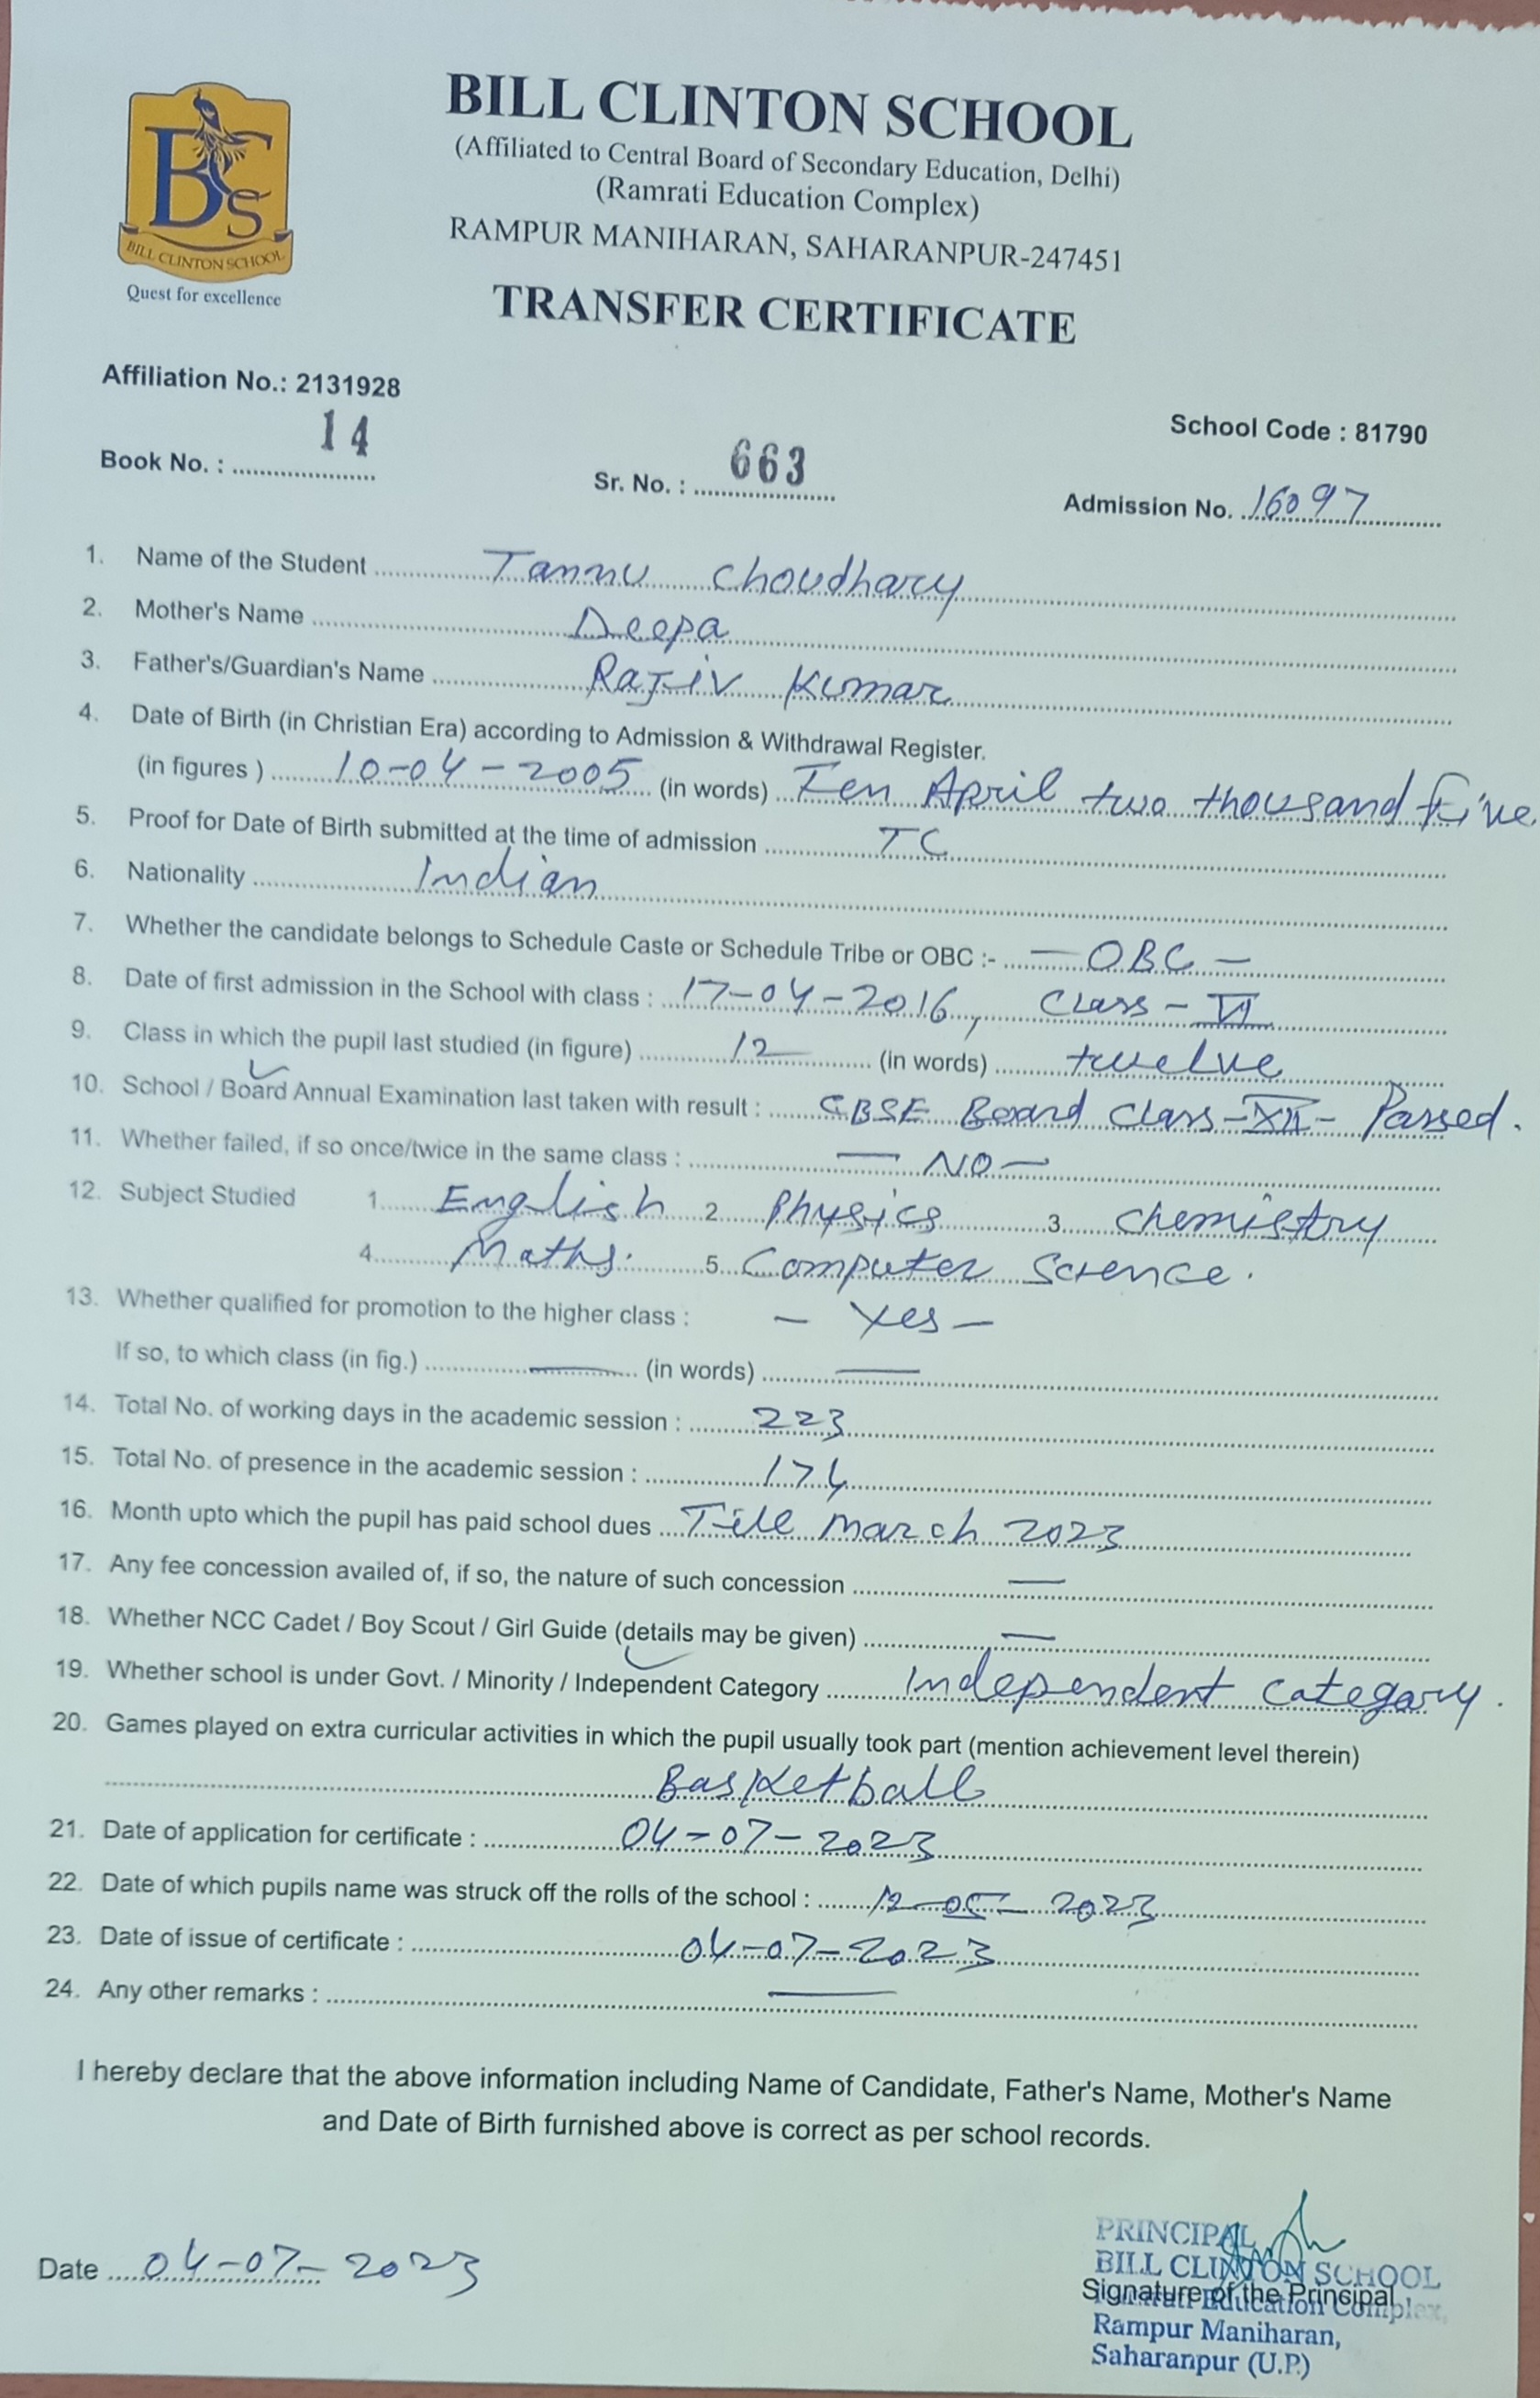 BILL CLINTON SCHOOL
(Affiliated to Central Board of Secondary Education, Delhi)
(Ramrati Education Complex)
RAMPUR MANIHARAN, SAHARANPUR-247451
BCS
BILL CLINTON SCHOOL
Quest for excellence
TRANSFER CERTIFICATE
Affiliation No.: 2131928
School Code : 81790
Book No. : 14 Sr. No. : 663 Admission No. 16097
1. Name of the Student Tannu Choudhary
2. Mother's Name Deepa
3. Father's/Guardian's Name Rajiv Kumar
4. Date of Birth (in Christian Era) according to Admission & Withdrawal Register.
(in figures ) 10-04-2005 (in words) Ten April two thousand Five
5. Proof for Date of Birth submitted at the time of admission TC
6. Nationality Indian
7. Whether the candidate belongs to Schedule Caste or Schedule Tribe or OBC :- — OBC —
8. Date of first admission in the School with class : 17-04-2016, Class - VI
9. Class in which the pupil last studied (in figure) 12 (in words) twelve
10. School / Board Annual Examination last taken with result : CBSE Board Class-XII- Passed.
11. Whether failed, if so once/twice in the same class : — No —
12. Subject Studied 1. English 2. Physics 3. Chemistry
4. Maths. 5. Computer Science.
13. Whether qualified for promotion to the higher class : — Yes —
If so, to which class (in fig.) — (in words) —
14. Total No. of working days in the academic session : 223
15. Total No. of presence in the academic session : 174
16. Month upto which the pupil has paid school dues Till March 2023
17. Any fee concession availed of, if so, the nature of such concession —
18. Whether NCC Cadet / Boy Scout / Girl Guide (details may be given) —
19. Whether school is under Govt. / Minority / Independent Category Independent category.
20. Games played on extra curricular activities in which the pupil usually took part (mention achievement level therein)
Basketball
21. Date of application for certificate : 04-07-2023
22. Date of which pupils name was struck off the rolls of the school : 12-05-2023
23. Date of issue of certificate : 04-07-2023
24. Any other remarks : —
I hereby declare that the above information including Name of Candidate, Father's Name, Mother's Name
and Date of Birth furnished above is correct as per school records.
Date 04-07-2023
PRINCIPAL
BILL CLINTON SCHOOL
Signature of the Principal
Education Complex,
Rampur Maniharan,
Saharanpur (U.P.)